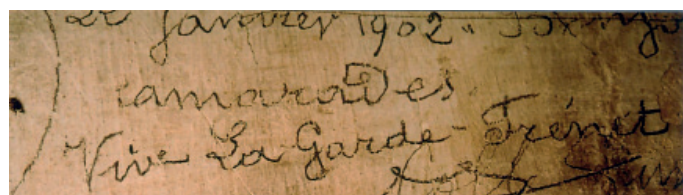 Le janvier 1902
camarades
Vive La Garde-Freinet